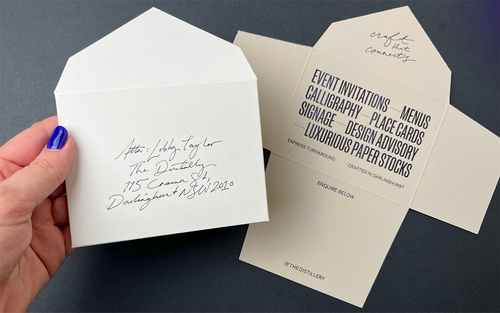 Attn: Libby Taylor
The Distillery
115 Crown St,
Darlinghurst NSW 2010
craft
that
connects
EVENT INVITATIONS — MENUS
CALLIGRAPHY — PLACE CARDS
SIGNAGE — DESIGN ADVISORY
— LUXURIOUS PAPER STOCKS
EXPRESS TURNAROUND CRAFTED IN DARLINGHURST
ENQUIRE BELOW
@THEDISTILLERY